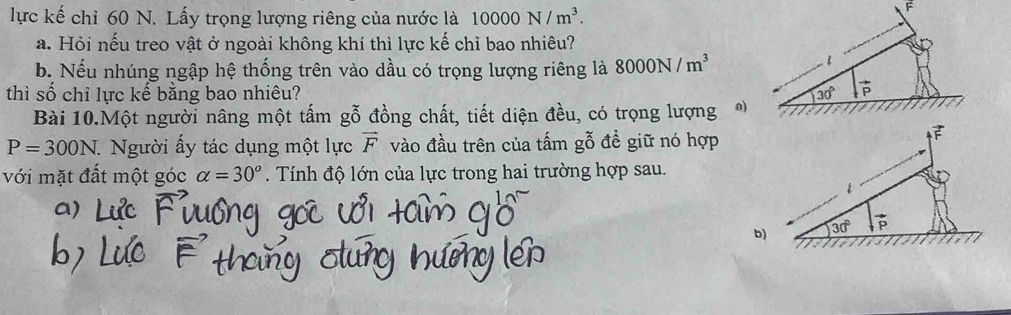 lực kế chỉ 60 N. Lấy trọng lượng riêng của nước là 10000 N/m³.
a. Hỏi nếu treo vật ở ngoài không khí thì lực kế chỉ bao nhiêu?
b. Nếu nhúng ngập hệ thống trên vào dầu có trọng lượng riêng là 8000N/m³
thì số chỉ lực kế bằng bao nhiêu?
Bài 10.Một người nâng một tấm gỗ đồng chất, tiết diện đều, có trọng lượng
P = 300N. Người ấy tác dụng một lực F⃗ vào đầu trên của tấm gỗ để giữ nó hợp
với mặt đất một góc α = 30°. Tính độ lớn của lực trong hai trường hợp sau.
a) Lực F⃗ vuông góc với tấm gỗ
b) Lực F⃗ thẳng đứng hướng lên
a)
F⃗
l
30°
P⃗
b)
F⃗
l
30°
P⃗